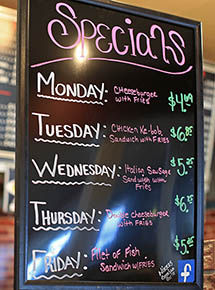 Specials
Monday: Cheeseburger with Fries $4.99
Tuesday: Chicken Ke-bob Sandwich with Fries
Wednesday: Italian Sausage Sandwich with Fries
Thursday: Double cheeseburger with Fries
Friday: Filet of Fish Sandwich w/FRIES
f